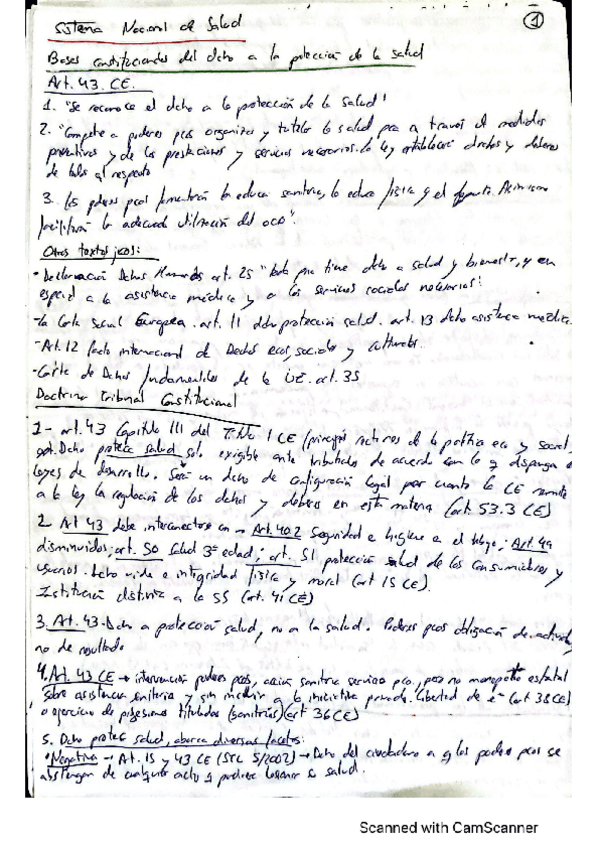 Sistema Nacional de Salud
1
Bases constitucionales del dcho a la protección de la salud
Art. 43. CE.
1. "Se reconoce el dcho a la protección de la salud"
2. "Compete a poderes pcos organizar y tutelar la salud pca a través de medidas
preventivas y de las prestaciones y servicios necesarios. La ley establecerá dchos y deberes
de todos al respecto
3. Los poderes pcos fomentarán la educa sanitaria, la educa física y el deporte. Asimismo
facilitarán la adecuada utilización del ocio".
Otros textos jcos:
- Declaración Dchos Humanos art. 25 "toda pna tiene dcho a salud y bienestar, y en
especial a la asistencia médica y a los servicios sociales necesarios".
- La Carta Social Europea. art. 11 dcho protección salud. art. 13 dcho asistencia médica.
- Art. 12 Pacto internacional de Dechos ecos, sociales y culturales.
- Carta de Dchos fundamentales de la UE. art. 35
Doctrina Tribunal Constitucional
1- art. 43 Capítulo III del Título I CE (principios rectores de la política eca y social,
Dcho protecc salud solo exigible ante tribunales de acuerdo con lo q dispongan
leyes de desarrollo. Será un dcho de configuración legal por cuanto la CE remite
a la ley la regulación de los dchos y deberes en esta materia (art. 53.3 CE)
2. Art 43 debe interconectarse con → Art. 40.2 Seguridad e higiene en el trbjo; Art. 49
disminuidos; art. 50 Salud 3ª edad; art. 51 protección salud de los consumidores y
usuarios. Dcho vida e integridad física y moral (art 15 CE).
Institución distinta a la SS (art. 41 CE)
3. Art. 43. Dcho a protección salud, no a la salud. Poderes pcos obligación de actividad,
no de resultado
4. Art. 43 CE → intervención poderes pcos, acción sanitaria servicio pco, pero no monopolio estatal
sobre asistencia sanitaria y sin impedir a la iniciativa privada. Libertad de eª (art 38 CE)
o ejercicio de profesiones tituladas (sanitarias) (art 36 CE)
5. Dcho protec salud, abarca diversas facetas:
• Negativa → Art. 15 y 43 CE (STC 5/2002) → Dcho del ciudadano a q los poderes pcos se
abstengan de cualquier acto q pudiese lesionar su salud.
Scanned with CamScanner